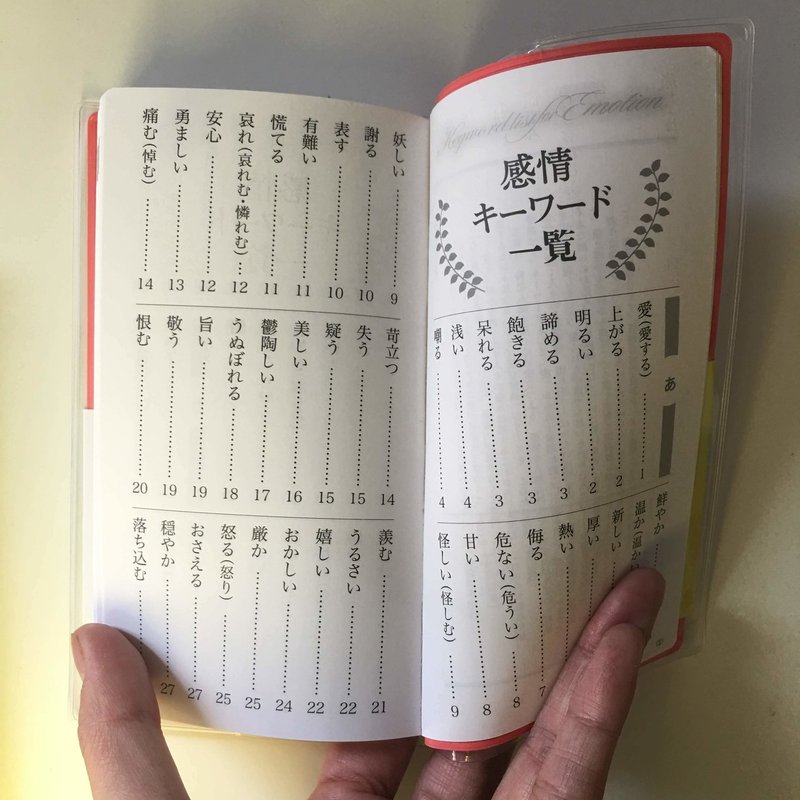 Keyword list for Emotion
感情
キーワード
一覧
あ
愛(愛する)…………1
上がる…………2
明るい…………2
諦める…………3
飽きる…………3
呆れる…………3
浅い…………4
嘲る…………4
鮮やか…………
温か(温かい
新しい…………
厚い…………
熱い…………
侮る…………7
危ない(危うい)……8
甘い…………8
怪しい(怪しむ)……9
②
妖しい…………9
謝る…………10
表す…………10
有難い…………11
慌てる…………11
哀れ(哀れむ・憐れむ)…12
安心…………12
勇ましい…………13
痛む(悼む)…………14
苛立つ…………14
失う…………15
疑う…………15
美しい…………16
鬱陶しい…………17
うぬぼれる…………18
旨い…………19
敬う…………19
恨む…………20
羨む…………21
うるさい…………22
嬉しい…………22
おかしい…………24
厳か…………25
怒る(怒り)…………25
おさえる…………27
穏やか…………27
落ち込む…………